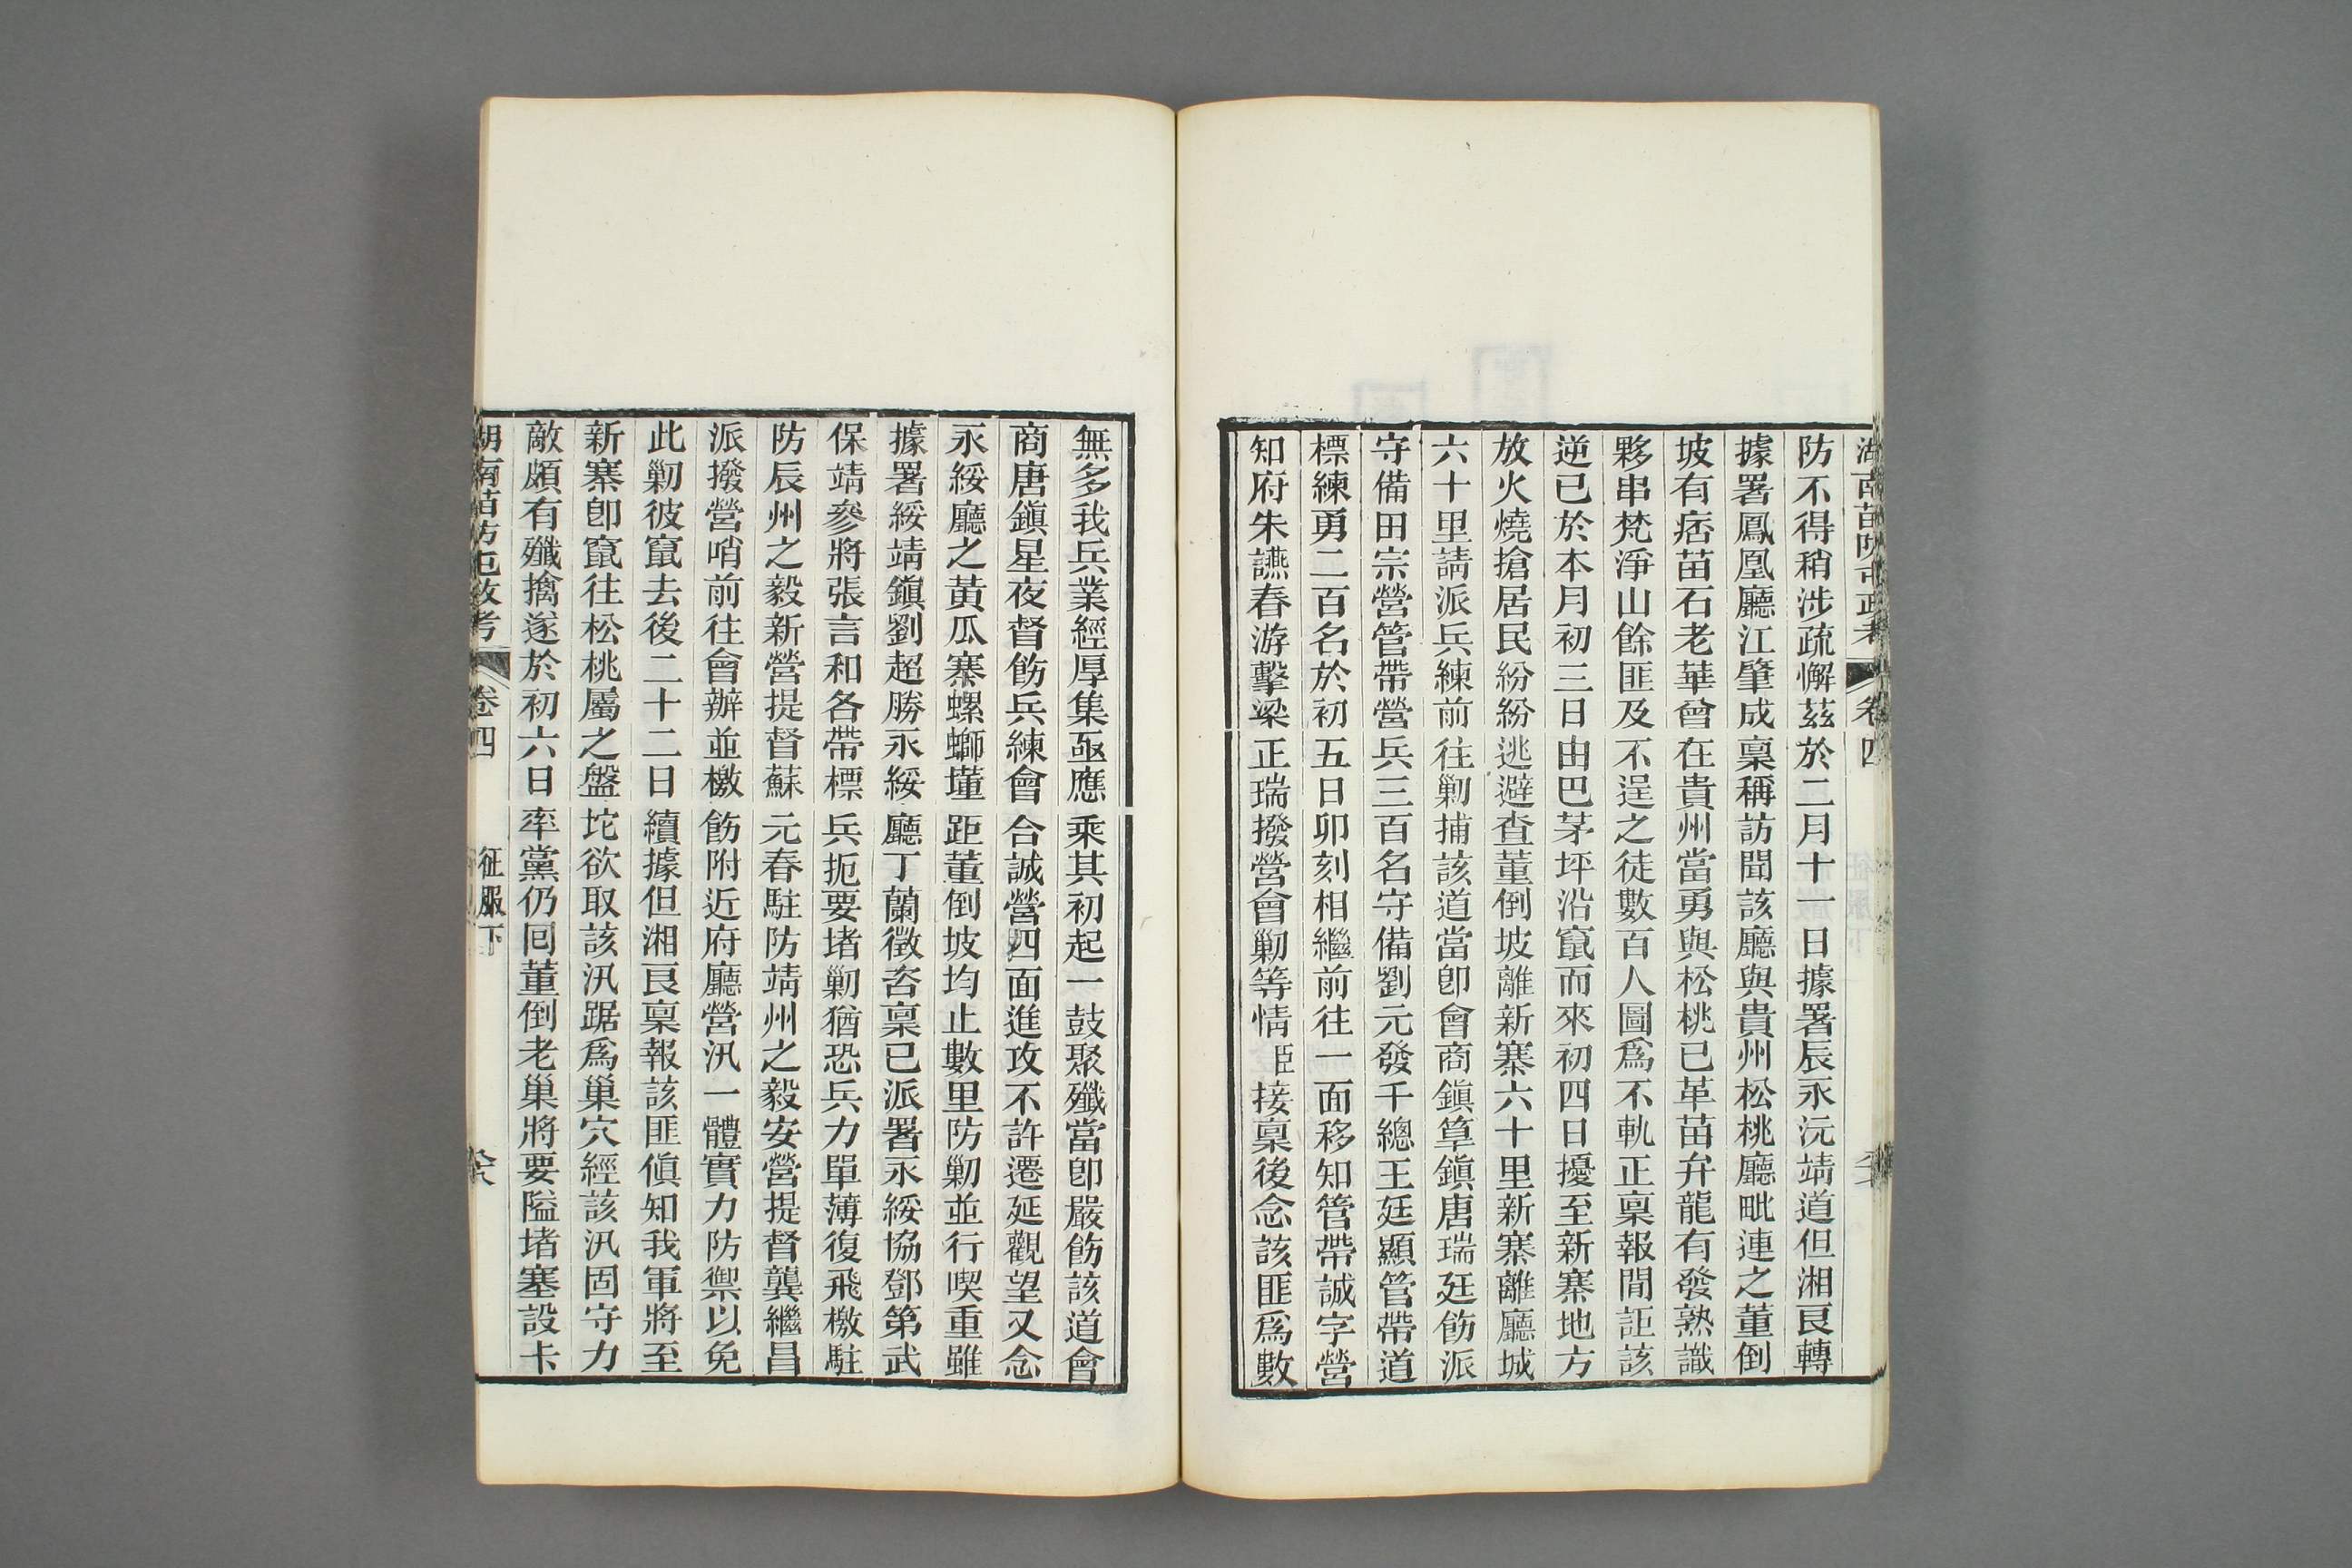 湖南苗防屯政考 卷四
防不得稍涉疏懈茲於二月十一日據署辰永沅靖道但湘良轉
據署鳳凰廳江肇成稟稱訪聞該廳與貴州松桃廳毗連之董倒
坡有痞苗石老華曾在貴州當勇與松桃已革苗弁龍有發熟識
夥串梵淨山餘匪及不逞之徒數百人圖爲不軌正稟報間詎該
逆已於本月初三日由巴茅坪沿竄而來初四日擾至新寨地方
放火燒搶居民紛紛逃避查董倒坡離新寨六十里新寨離廳城
六十里請派兵練前往勦捕該道當卽會商鎭筸鎭唐瑞廷飭派
守備田宗營管帶營兵三百名守備劉元發千總王廷顯管帶道
標練勇二百名於初五日卯刻相繼前往一面移知管帶誠字營
知府朱讌春游擊梁正瑞撥營會勦等情臣接稟後念該匪爲數
無多我兵業經厚集亟應乘其初起一鼓聚殲當卽嚴飭該道會
商唐鎭星夜督飭兵練會合誠營四面進攻不許遷延觀望又念
永綏廳之黃瓜寨螺螄墐距董倒坡均止數里防勦並行喫重雖
據署綏靖鎭劉超勝永綏廳丁蘭徵咨稟已派署永綏協鄧第武
保靖參將張言和各帶標兵扼要堵勦猶恐兵力單薄復飛檄駐
防辰州之毅新營提督蘇元春駐防靖州之毅安營提督龔繼昌
派撥營哨前往會辦並檄飭附近府廳營汛一體實力防禦以免
此勦彼竄去後二十二日續據但湘良稟報該匪偵知我軍將至
新寨卽竄往松桃屬之盤坨欲取該汛踞爲巢穴經該汛固守力
敵頗有殲擒遂於初六日率黨仍回董倒老巢將要隘堵塞設卡
湖南苗防屯政考 卷四 征服下